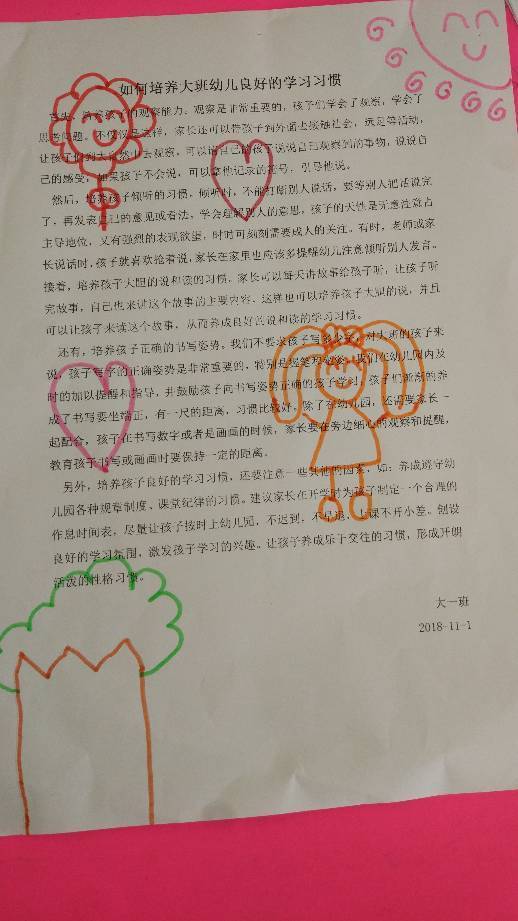 如何培养大班幼儿良好的学习习惯
首先，培养孩子的观察能力。观察是非常重要的，孩子们学会了观察，学会了
思考问题。不仅仅是这样，家长还可以带孩子到外面去接触社会，远足等活动，
让孩子们到大自然中去观察，可以请自己的孩子说说自己观察到的事物，说说自
己的感受，如果孩子不会说，可以拿他记录的符号，引导他说。
然后，培养孩子倾听的习惯，倾听时，不能打断别人说话，要等别人把话说完
了，再发表自己的意见或看法，学会理解别人的意思，孩子的天性是无意注意占
主导地位，又有强烈的表现欲望，时时可刻刻需要成人的关注。有时，老师或家
长说话时，孩子就喜欢抢着说，家长在家里也应该多提醒幼儿注意倾听别人发言。
接着，培养孩子大胆的说和读的习惯，家长可以每天讲故事给孩子听，让孩子听
完故事，自己也来讲这个故事的主要内容，这样也可以培养孩子大胆的说，并且
可以让孩子来读这个故事，从而养成良好的说和读的学习习惯。
还有，培养孩子正确的书写姿势。我们不要求孩子写多少字，对大班的孩子来
说，孩子写字的正确姿势是非常重要的，特别是握笔和坐姿，我们在幼儿园内及
时的加以提醒和指导，并鼓励孩子向书写姿势正确的孩子学习，孩子们渐渐的养
成了书写要坐端正，有一尺的距离，习惯比较好，除了在幼儿园，还需要家长一
起配合，孩子在书写数字或者是画画的时候，家长要在旁边细心的观察和提醒，
教育孩子书写或画画时要保持一定的距离。
另外，培养孩子良好的学习习惯，还要注意一些其他的因素，如：养成遵守幼
儿园各种规章制度、课堂纪律的习惯。建议家长在开学时为孩子制定一个合理的
作息时间表，尽量让孩子按时上幼儿园，不迟到，不早退，上课不开小差。创设
良好的学习氛围，激发孩子学习的兴趣。让孩子养成乐于交往的习惯，形成开朗
活泼的性格习惯。
大一班
2018-11-1